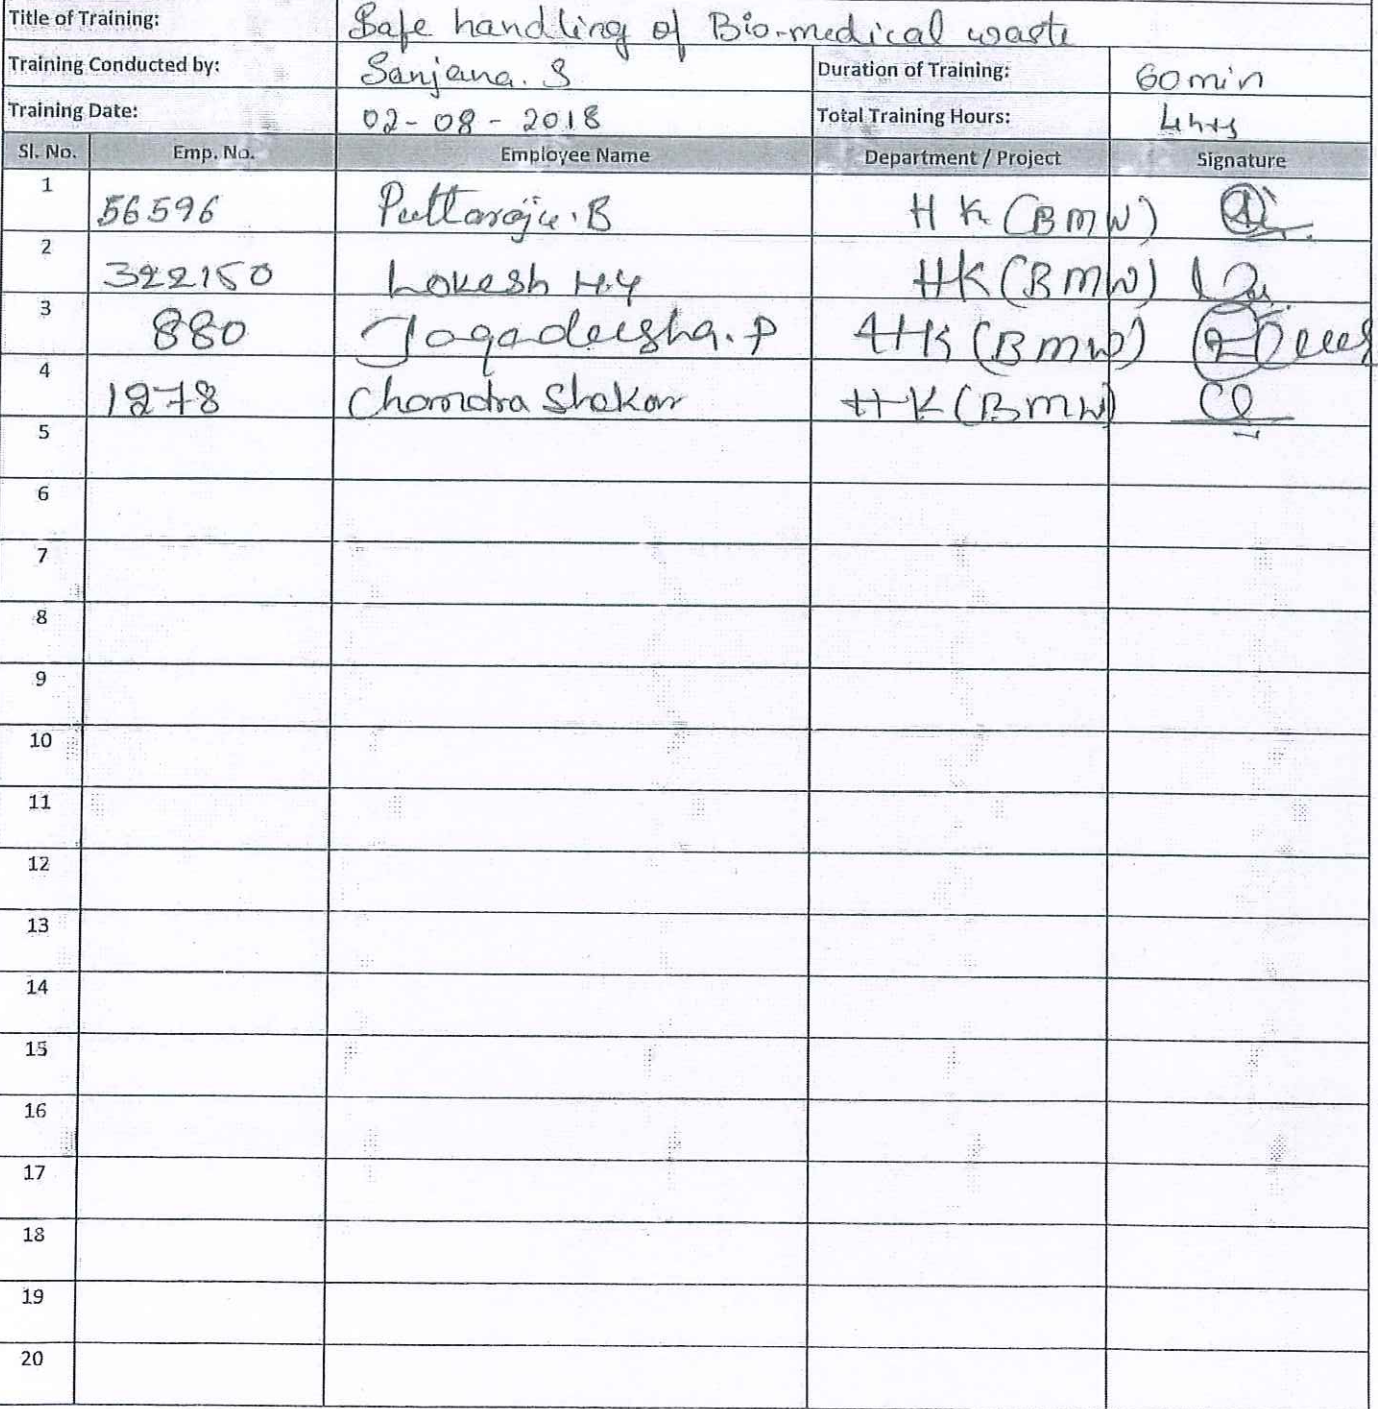 Title of Training: Safe handling of Bio-medical waste
Training Conducted by: Sanjana. S Duration of Training: 60 min
Training Date: 02-08-2018 Total Training Hours: 4 hrs
Sl. No. Emp. No. Employee Name Department / Project Signature
1 56596 Puttaraju.B HK (BMW)
2 322150 Lokesh H.Y HK (BMW)
3 880 Jagadeesha.P HK (BMW)
4 1278 Chandra Shekar HK (BMW)
5
6
7
8
9
10
11
12
13
14
15
16
17
18
19
20